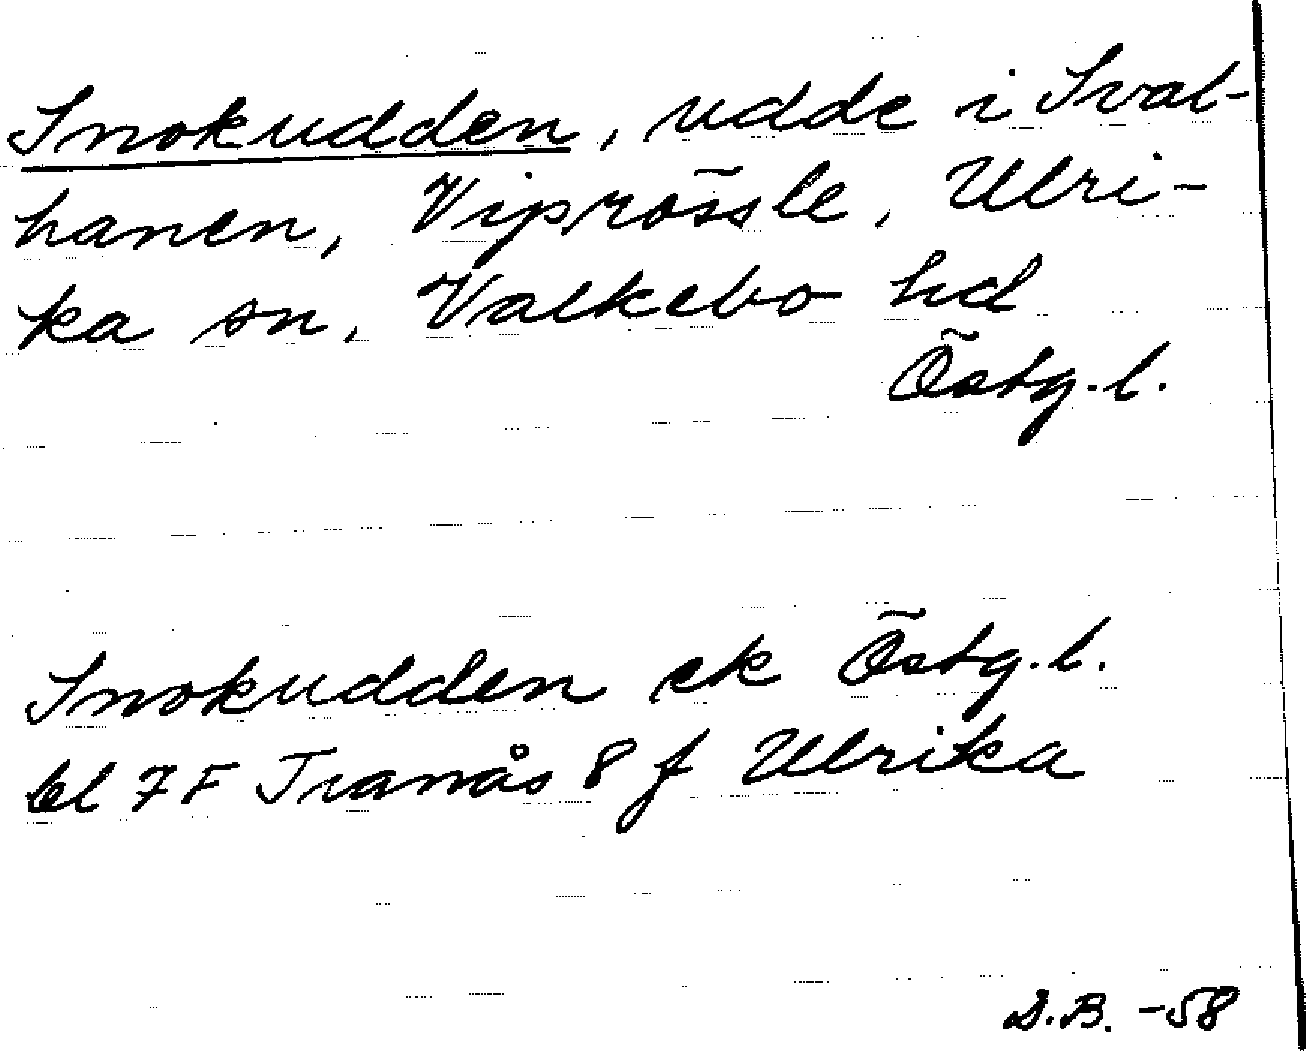 Snokudden, udde i Sval-
hanen, Viprössle, Ulri-
ka sn, Valkebo hd
Östg.l.
Snokudden ek Östg.l.
bl 7F Tranås 8 f Ulrika
D.B. -58